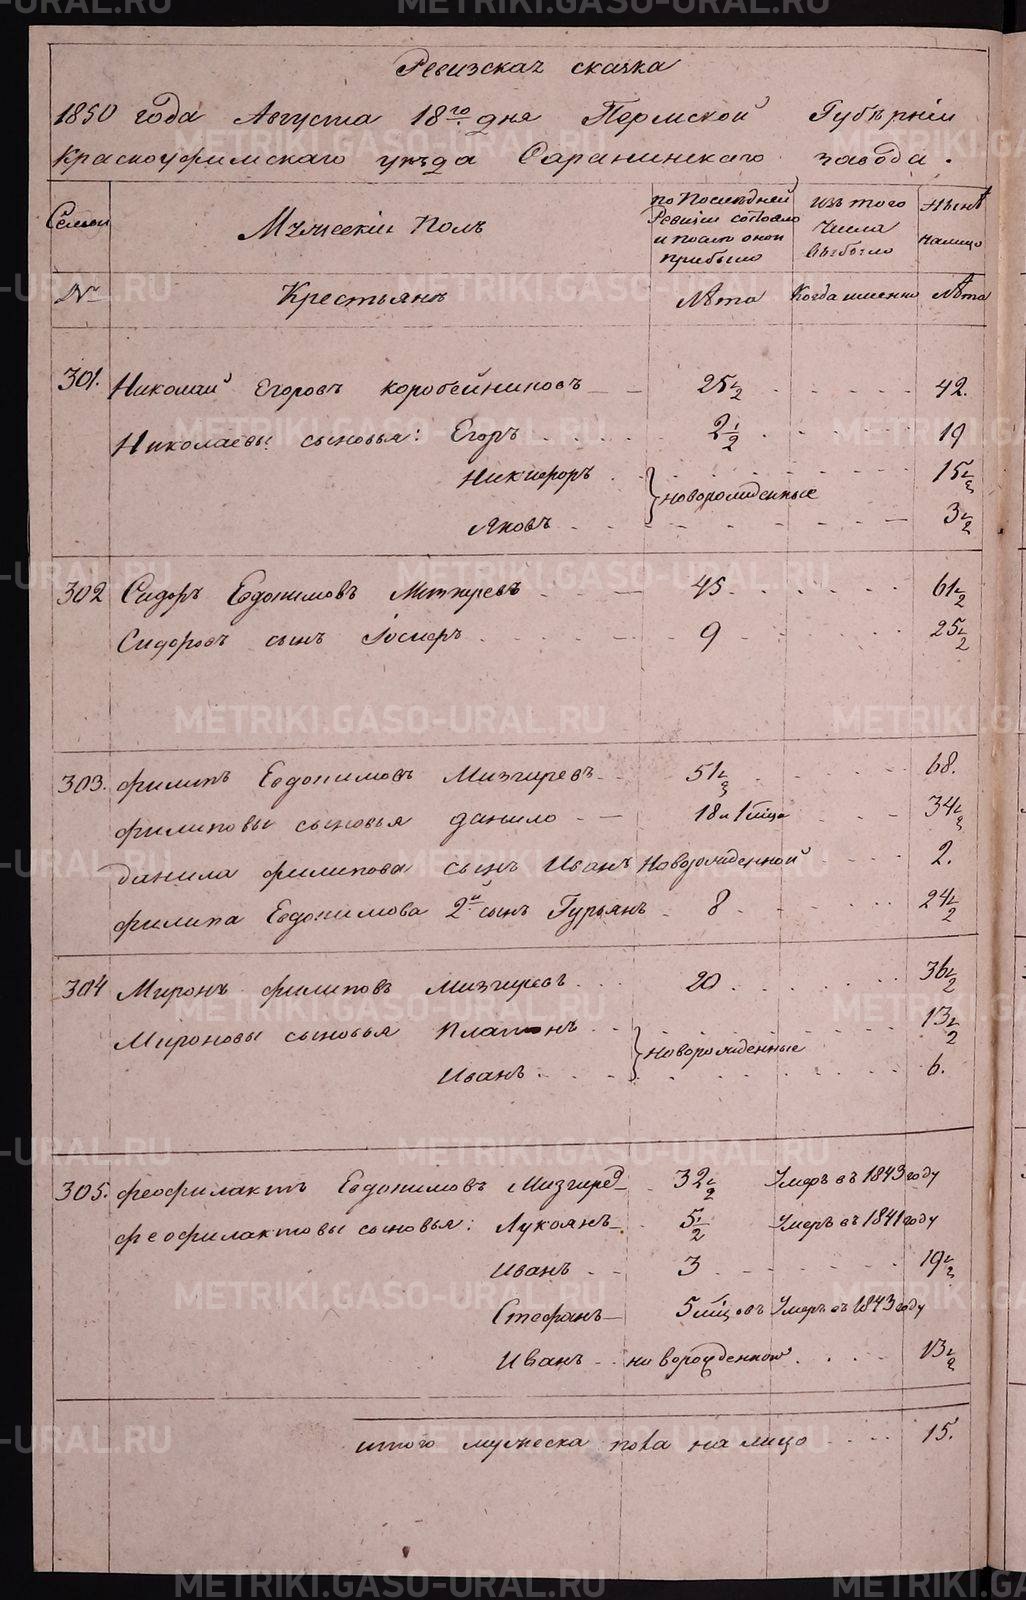 Ревизская сказка
1850 года Августа 18го дня Пермской Губерніи
Красноуфимскаго уезда Саранинскаго завода.
Семьи
Мужескій Полъ
по Последней Ревизіи состояло и после оной прибыло
Изъ того Числа выбыло
Ныне на лицо
№
Крестьянъ
Лѣта
Когда именно
Лѣта
301. Николай Егоровъ Коробейниковъ 25½ 42.
Николаевы сыновья: Егоръ 2½ 19
Никифоръ 15½
новорожденные
Яковъ 3½
302 Сидоръ Евдокимовъ Мизгиревъ 45 61½
Сидоровъ сынъ 9 25½
303. Филипъ Евдокимовъ Мизгиревъ 51½ 68.
Филиповы сыновья Данило 18 и 1 мца 34½
Данила Филипова сынъ Иванъ Новорожденной 2.
Филипа Евдокимова 2й сынъ Гурьянъ 8 24½
304 Миронъ Филиповъ Мизгиревъ 20 36½
Мироновы сыновья Платонъ 13½
новорожденные
Иванъ 6.
305. Феофилактъ Евдокимовъ Мизгирев 32½ Умеръ въ 1843 году
Феофилактовы сыновья: Лукоянъ 5½ Умеръ въ 1841 году
Иванъ 3 19½
Стефанъ 5 мцовъ Умеръ въ 1843 году
Иванъ новорожденной 13½
итого мужеска пола на лицо 15.
METRIKI.GASO-URAL.RU